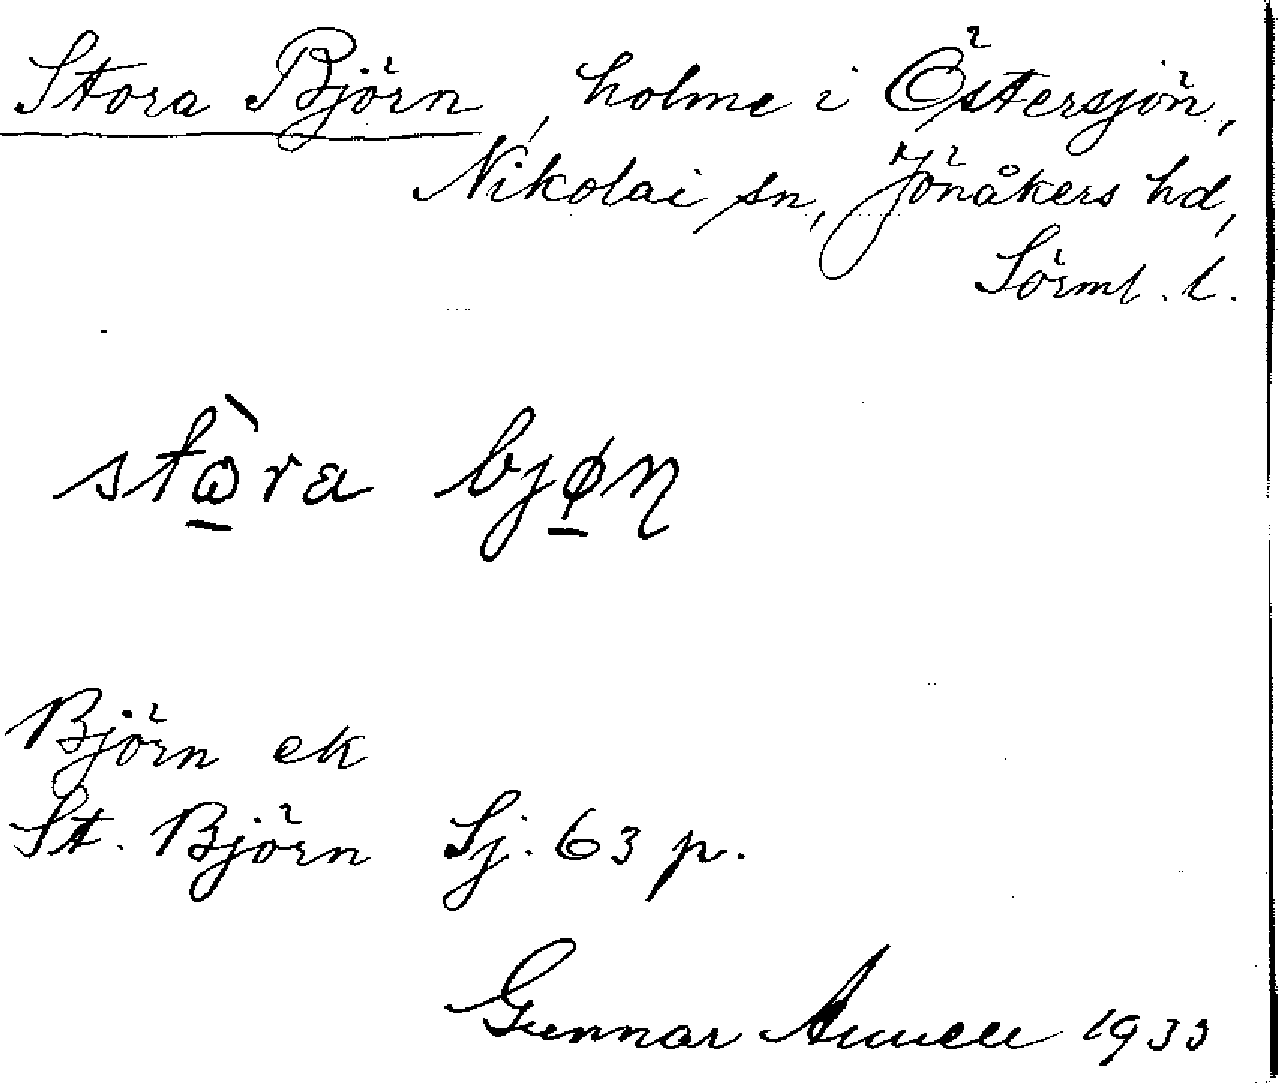 Stora Björn, holme i Östersjön,
Nikolai sn, Jönåkers hd,
Sörml. l.
stὼ̲ra bjø̲ɳ
Björn ek
St. Björn Sj. 63 p.
Gunnar 1933